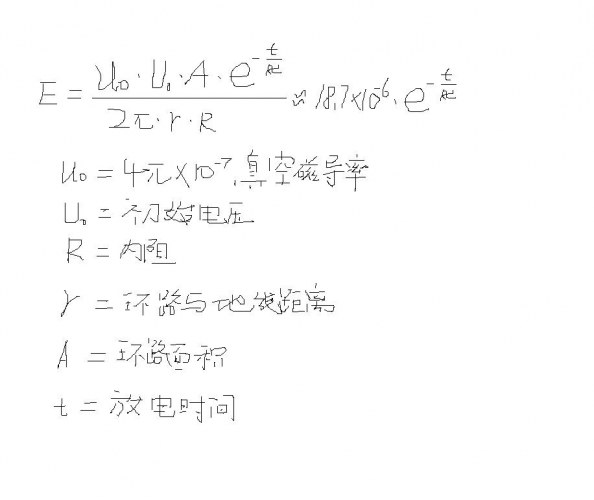 E = (μ₀·U₀·A·e^(-t/RC))/(2π·r·R) ≈ 18.7×10⁻⁶·e^(-t/RC)
μ₀ = 4π×10⁻⁷,真空磁导率
U₀ = 初始电压
R = 内阻
r = 环路与地线距离
A = 环路面积
t = 放电时间